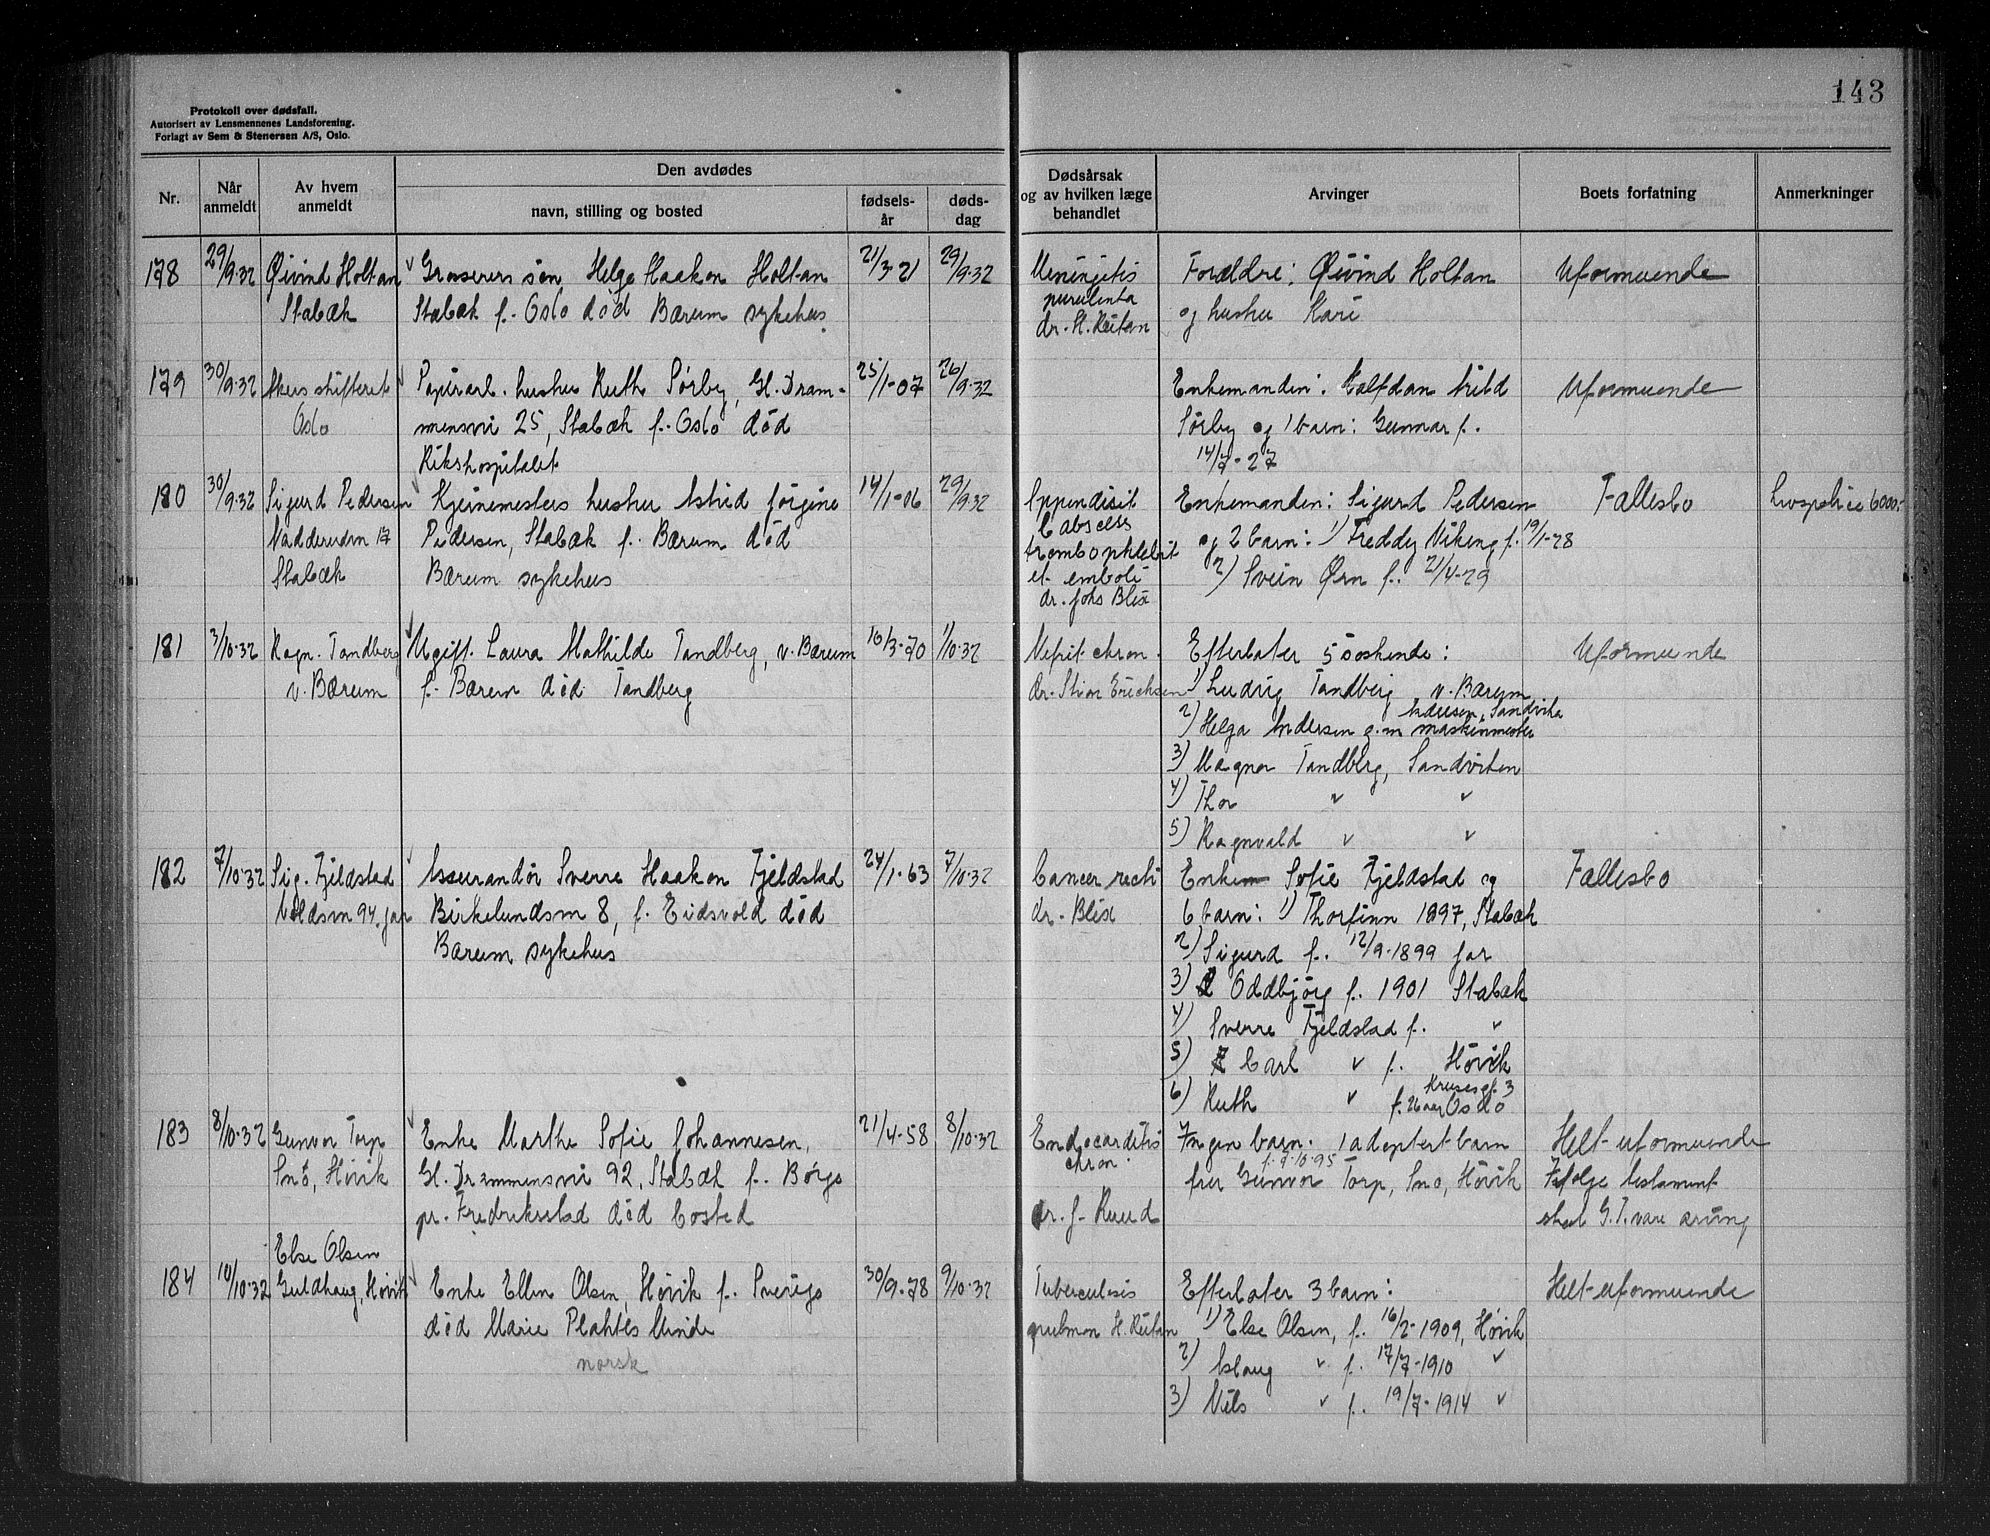 143
Protokoll over dødsfall.
Autorisert av Lensmennenes Landsforening.
Forlagt av Sem & Stenersen A/S, Oslo.
Nr.
Når anmeldt
Av hvem anmeldt
Den avdødes
navn, stilling og bosted
fødsels-år
døds-dag
Dødsårsak og av hvilken læge behandlet
Arvinger
Boets forfatning
Anmerkninger
178
29/9.32
Øivind Holtan
Stabæk
Grosserers søn Helge Haakon Holtan
Stabæk f. Oslo død Bærum sykehus.
21/3-21
29/9.32
Meningitis
purulenta
dr. H. Reitan
Forældre: Øivind Holtan
og hustru Kari
Uformuende
179
30/9.32
Akers skifteret
Oslo
Papirarb. hustru Ruth Sørby, Gl. Dram-
mensvei 25, Stabæk f. Oslo død
Rikshospitalet
25/1-07
26/9.32
Enkemanden: Halfdan
Sørby og 1 barn: Gunnar f.
14/7-27
Uformuende
180
30/9.32
Sigurd Pedersen
Nadderudvn 17
Stabæk
Kjeinemesters hustru Astrid Jørgine
Pedersen, Stabæk f. Bærum død
Bærum sykehus
14/1-06
29/9.32
Appendisit
C abscess
trombophlebit
et emboli
dr. Johs Blix
Enkemanden: Sigurd Pedersen
og 2 barn: 1) Freddy Viking f. 19/1-28
2) Svein Ørn f. 21/4-29
Fællesbo
Livspolice 6000.-
181
3/10.32
Ragn. Tandberg
v. Bærum
Ugift. Laura Mathilde Tandberg, v. Bærum
f. Bærum død Tandberg
16/3-70
1/10.32
Nefrit chron.
dr. Stian Erichsen
Efterlater 5 søskende:
1) Ludvig Tandberg v. Bærum
2) Helga Andersen g.m maskinmester Andersen, Sandvika
3) Magnor Tandberg, Sandviken
4) Thor " "
5) Ragnvald " "
Uformuende
182
7/10.32
Sig. Fjeldstad
94. Jar
Assurandør Sverre Haakon Fjeldstad
Birkelundsvn 8, f. Eidsvold død
Bærum sykehus
24/1-63
7/10.32
Cancer recti
dr. Blix
Enken Sofie Fjeldstad og
6 barn: 1) Thorfinn 1897, Stabæk
2) Sigurd f. 12/9-1899 Jar
3) Oddbjørg f. 1901 Stabæk
4) Sverre Fjeldstad f. "
5) Carl " f. Høvik
6) Ruth " f. 26 aar Krusesgt. 3 Oslo
Fællesbo
183
8/10.32
Gunvor Torp
Snø, Høvik
Enke Marthe Sofie Johannesen,
Gl. Drammensvei 92, Stabæk f. Borge
pr. Fredrikstad død bosted
21/4-58
8/10.32
Endocarditis
chron.
dr. J. Ruud
Ingen barn. 1 adoptert barn
f. 9.10.95
fru Gunvor Torp, Snø, Høvik
Helt uformuende
Ifølge testament
skal G.T. være arving
184
10/10.32
Else Olsen
Guldhaug, Høvik
Enke Ellen Olsen, Høvik f. Sverige
død Marie Plahtes Minde
norsk
30/9-78
9/10.32
Tuberculosis
pulmon H. Reitan
Efterlater 3 barn:
1) Else Olsen, f. 16/2-1909, Høvik
2) Aslaug " f. 17/7-1910 "
3) Nils " f. 19/7-1914 "
Helt uformuende